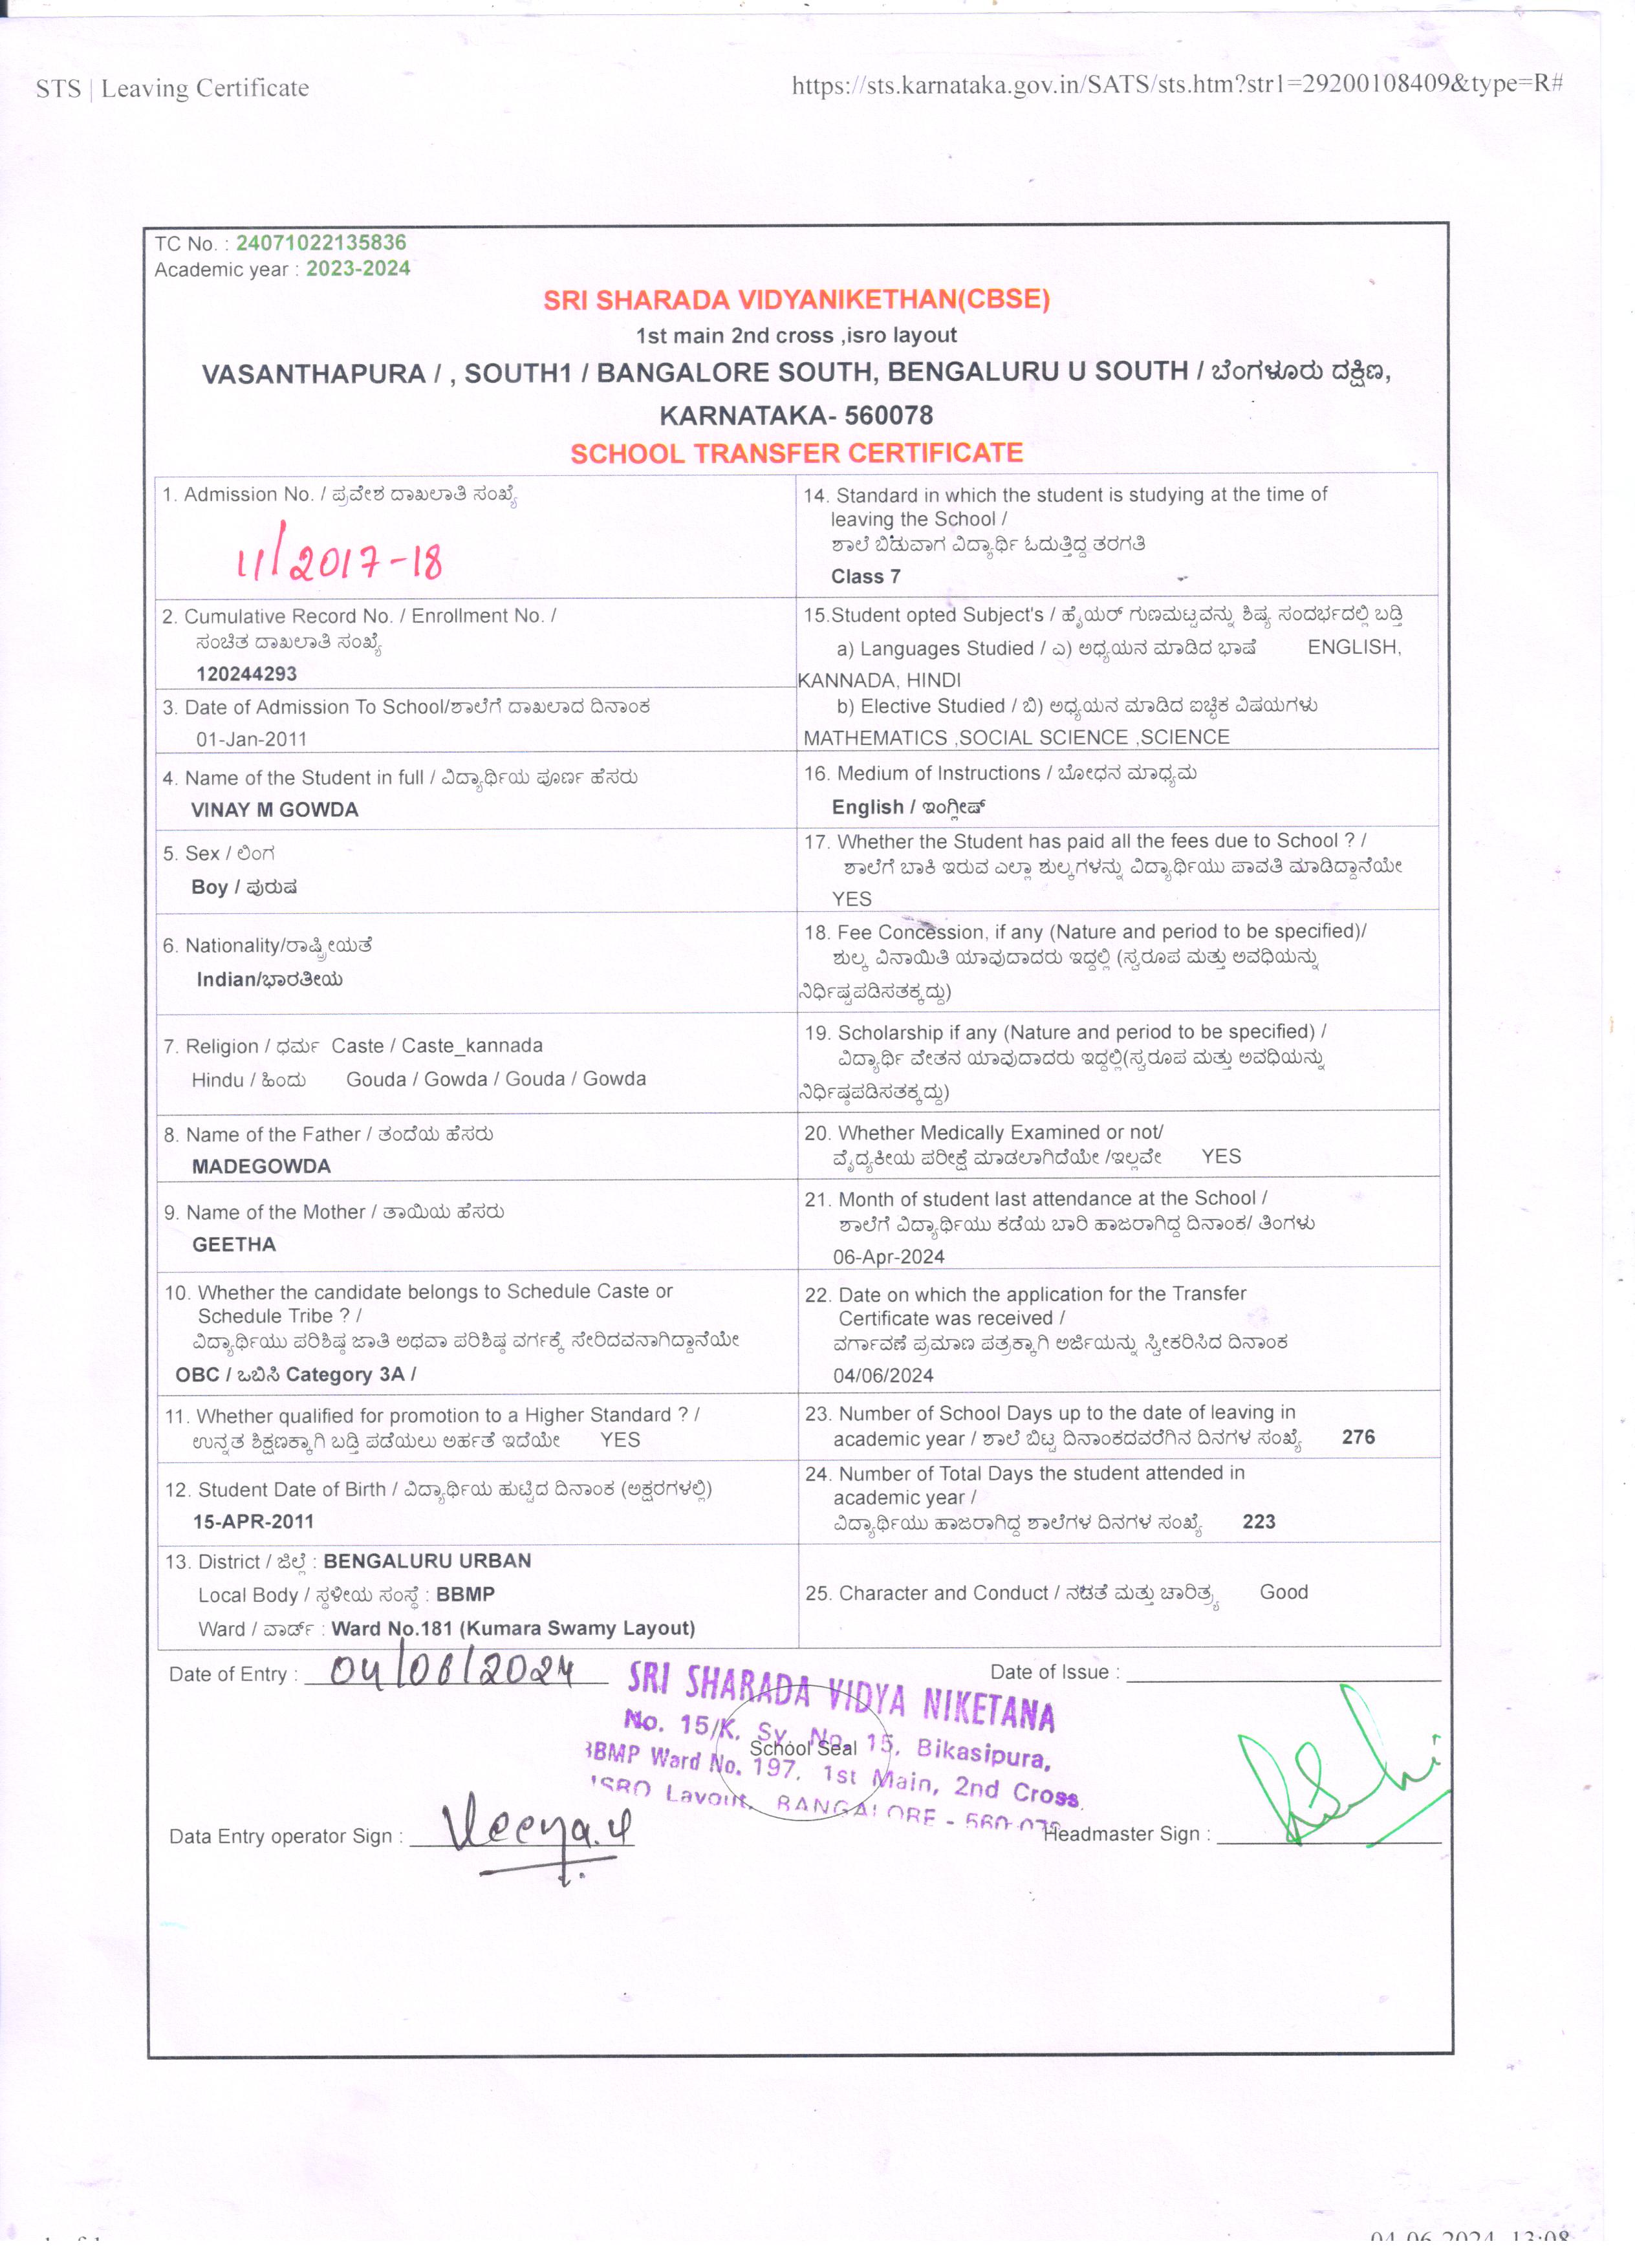 STS | Leaving Certificate
https://sts.karnataka.gov.in/SATS/sts.htm?str1=29200108409&type=R#
TC No. : 24071022135836
Academic year : 2023-2024
SRI SHARADA VIDYANIKETHAN(CBSE)
1st main 2nd cross ,isro layout
VASANTHAPURA / , SOUTH1 / BANGALORE SOUTH, BENGALURU U SOUTH / ಬೆಂಗಳೂರು ದಕ್ಷಿಣ,
KARNATAKA- 560078
SCHOOL TRANSFER CERTIFICATE
1. Admission No. / ಪ್ರವೇಶ ದಾಖಲಾತಿ ಸಂಖ್ಯೆ
11/2017-18
2. Cumulative Record No. / Enrollment No. /
ಸಂಚಿತ ದಾಖಲಾತಿ ಸಂಖ್ಯೆ
120244293
3. Date of Admission To School/ಶಾಲೆಗೆ ದಾಖಲಾದ ದಿನಾಂಕ
01-Jan-2011
4. Name of the Student in full / ವಿದ್ಯಾರ್ಥಿಯ ಪೂರ್ಣ ಹೆಸರು
VINAY M GOWDA
5. Sex / ಲಿಂಗ
Boy / ಪುರುಷ
6. Nationality/ರಾಷ್ಟ್ರೀಯತೆ
Indian/ಭಾರತೀಯ
7. Religion / ಧರ್ಮ Caste / Caste_kannada
Hindu / ಹಿಂದು Gouda / Gowda / Gouda / Gowda
8. Name of the Father / ತಂದೆಯ ಹೆಸರು
MADEGOWDA
9. Name of the Mother / ತಾಯಿಯ ಹೆಸರು
GEETHA
10. Whether the candidate belongs to Schedule Caste or
Schedule Tribe ? /
ವಿದ್ಯಾರ್ಥಿಯು ಪರಿಶಿಷ್ಠ ಜಾತಿ ಅಥವಾ ಪರಿಶಿಷ್ಠ ವರ್ಗಕ್ಕೆ ಸೇರಿದವನಾಗಿದ್ದಾನೆಯೇ
OBC / ಒಬಿಸಿ Category 3A /
11. Whether qualified for promotion to a Higher Standard ? /
ಉನ್ನತ ಶಿಕ್ಷಣಕ್ಕಾಗಿ ಬಡ್ತಿ ಪಡೆಯಲು ಅರ್ಹತೆ ಇದೆಯೇ YES
12. Student Date of Birth / ವಿದ್ಯಾರ್ಥಿಯ ಹುಟ್ಟಿದ ದಿನಾಂಕ (ಅಕ್ಷರಗಳಲ್ಲಿ)
15-APR-2011
13. District / ಜಿಲ್ಲೆ : BENGALURU URBAN
Local Body / ಸ್ಥಳೀಯ ಸಂಸ್ಥೆ : BBMP
Ward / ವಾರ್ಡ್ : Ward No.181 (Kumara Swamy Layout)
14. Standard in which the student is studying at the time of
leaving the School /
ಶಾಲೆ ಬಿಡುವಾಗ ವಿದ್ಯಾರ್ಥಿ ಓದುತ್ತಿದ್ದ ತರಗತಿ
Class 7
15.Student opted Subject's / ಹೈಯರ್ ಗುಣಮಟ್ಟವನ್ನು ಶಿಷ್ಯ ಸಂದರ್ಭದಲ್ಲಿ ಬಡ್ತಿ
a) Languages Studied / ಎ) ಅಧ್ಯಯನ ಮಾಡಿದ ಭಾಷೆ ENGLISH,
KANNADA, HINDI
b) Elective Studied / ಬಿ) ಅಧ್ಯಯನ ಮಾಡಿದ ಐಚ್ಛಿಕ ವಿಷಯಗಳು
MATHEMATICS ,SOCIAL SCIENCE ,SCIENCE
16. Medium of Instructions / ಬೋಧನ ಮಾಧ್ಯಮ
English / ಇಂಗ್ಲೀಷ್
17. Whether the Student has paid all the fees due to School ? /
ಶಾಲೆಗೆ ಬಾಕಿ ಇರುವ ಎಲ್ಲಾ ಶುಲ್ಕಗಳನ್ನು ವಿದ್ಯಾರ್ಥಿಯು ಪಾವತಿ ಮಾಡಿದ್ದಾನೆಯೇ
YES
18. Fee Concession, if any (Nature and period to be specified)/
ಶುಲ್ಕ ವಿನಾಯಿತಿ ಯಾವುದಾದರು ಇದ್ದಲ್ಲಿ (ಸ್ವರೂಪ ಮತ್ತು ಅವಧಿಯನ್ನು
ನಿರ್ಧಿಷ್ಟಪಡಿಸತಕ್ಕದ್ದು)
19. Scholarship if any (Nature and period to be specified) /
ವಿದ್ಯಾರ್ಥಿ ವೇತನ ಯಾವುದಾದರು ಇದ್ದಲ್ಲಿ(ಸ್ವರೂಪ ಮತ್ತು ಅವಧಿಯನ್ನು
ನಿರ್ಧಿಷ್ಠಪಡಿಸತಕ್ಕದ್ದು)
20. Whether Medically Examined or not/
ವೈದ್ಯಕೀಯ ಪರೀಕ್ಷೆ ಮಾಡಲಾಗಿದೆಯೇ /ಇಲ್ಲವೇ YES
21. Month of student last attendance at the School /
ಶಾಲೆಗೆ ವಿದ್ಯಾರ್ಥಿಯು ಕಡೆಯ ಬಾರಿ ಹಾಜರಾಗಿದ್ದ ದಿನಾಂಕ/ ತಿಂಗಳು
06-Apr-2024
22. Date on which the application for the Transfer
Certificate was received /
ವರ್ಗಾವಣೆ ಪ್ರಮಾಣ ಪತ್ರಕ್ಕಾಗಿ ಅರ್ಜಿಯನ್ನು ಸ್ವೀಕರಿಸಿದ ದಿನಾಂಕ
04/06/2024
23. Number of School Days up to the date of leaving in
academic year / ಶಾಲೆ ಬಿಟ್ಟ ದಿನಾಂಕದವರೆಗಿನ ದಿನಗಳ ಸಂಖ್ಯೆ 276
24. Number of Total Days the student attended in
academic year /
ವಿದ್ಯಾರ್ಥಿಯು ಹಾಜರಾಗಿದ್ದ ಶಾಲೆಗಳ ದಿನಗಳ ಸಂಖ್ಯೆ 223
25. Character and Conduct / ನಡತೆ ಮತ್ತು ಚಾರಿತ್ರ್ಯ Good
Date of Entry : 04/06/2024
Date of Issue :
SRI SHARADA VIDYA NIKETANA
No. 15/K, Sy. No. 15, Bikasipura,
BBMP Ward No. 197, 1st Main, 2nd Cross
ISRO Layout, BANGALORE - 560 078
School Seal
Data Entry operator Sign : Veena.y
Headmaster Sign :
04-06-2024, 13:08